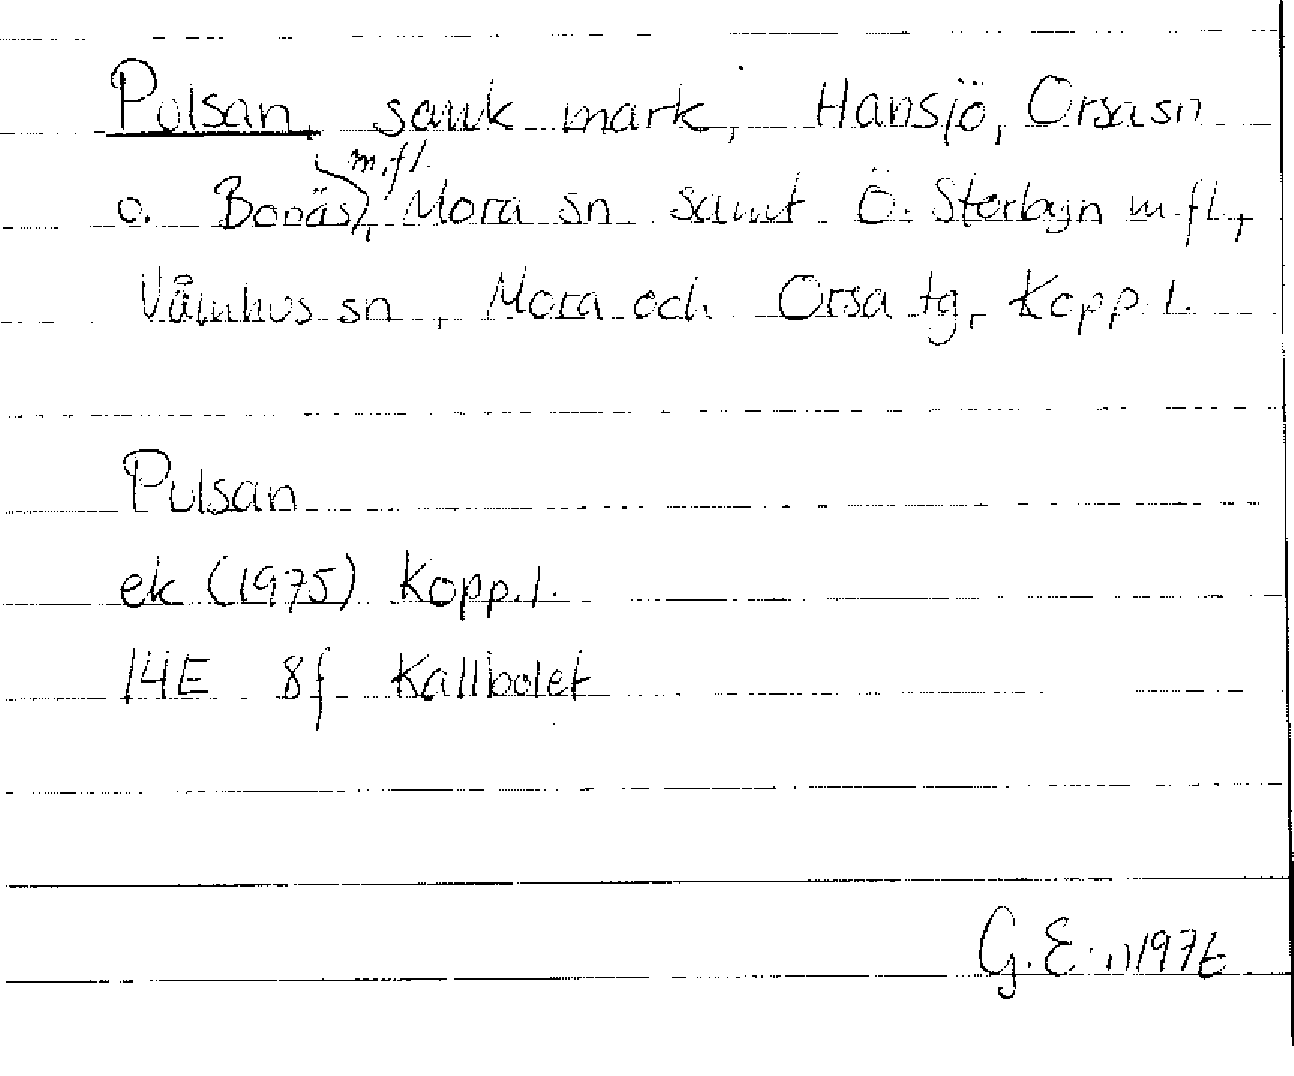 Pulsan, sank mark, Hansjö, Orsa sn
o. Bonäs m.fl., Mora sn samt Ö. Storbyn m fl.,
Våmhus sn, Mora och Orsa tg, Kopp. l.
Pulsan
ek (1975) Kopp. l.
14E 8f Kallbolet
G.E. 1976